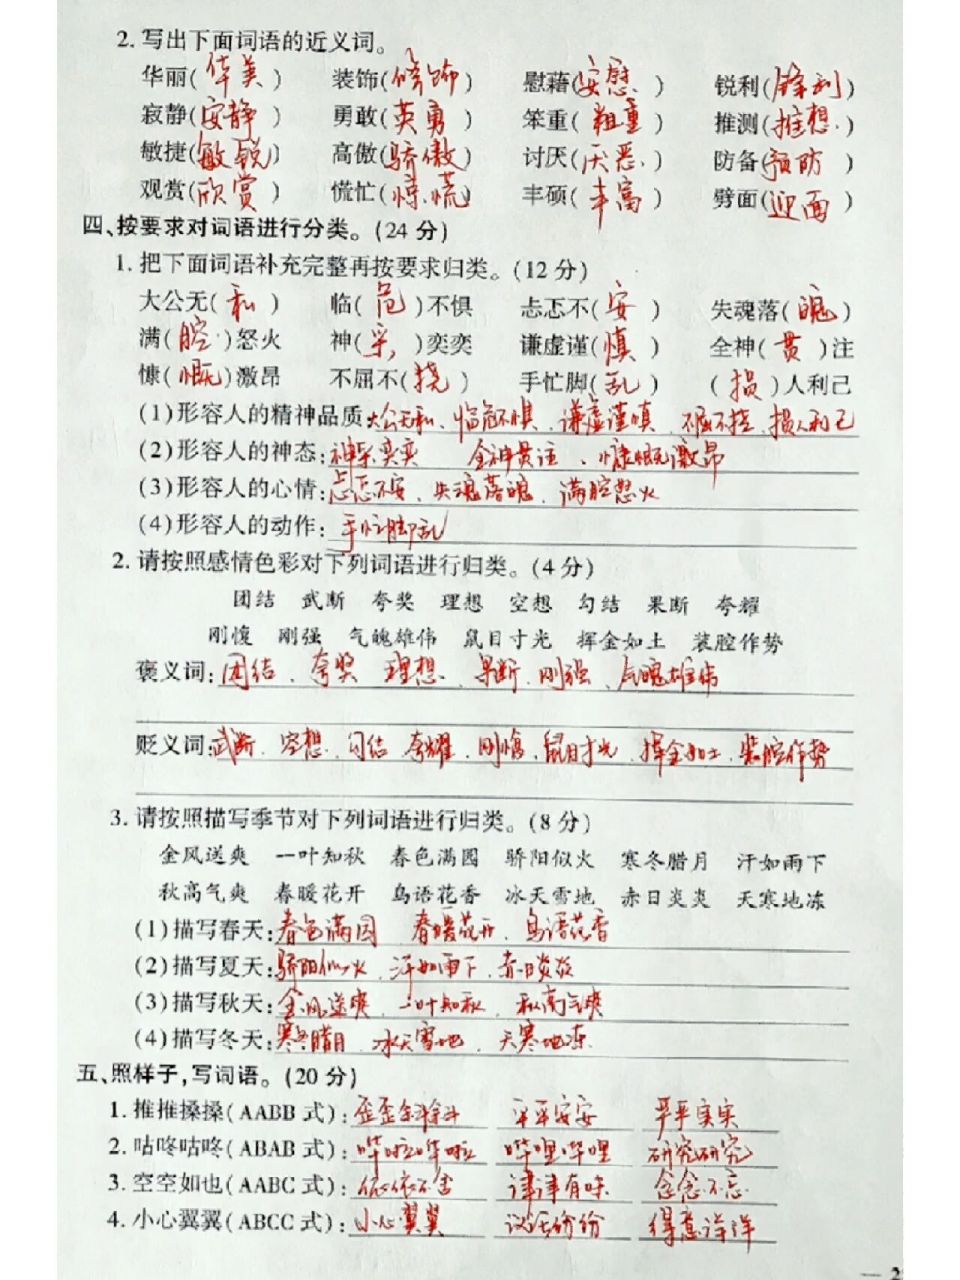 2. 写出下面词语的近义词。
华丽(华美) 装饰(修饰) 慰藉(安慰) 锐利(锋利)
寂静(安静) 勇敢(英勇) 笨重(粗重) 推测(推想)
敏捷(敏锐) 高傲(骄傲) 讨厌(厌恶) 防备(预防)
观赏(欣赏) 慌忙(惊慌) 丰硕(丰富) 劈面(迎面)
四、按要求对词语进行分类。(24分)
1. 把下面词语补充完整再按要求归类。(12分)
大公无(私) 临(危)不惧 忐忑不(安) 失魂落(魄)
满(腔)怒火 神(采)奕奕 谦虚谨(慎) 全神(贯)注
慷(慨)激昂 不屈不(挠) 手忙脚(乱) (损)人利己
(1)形容人的精神品质 大公无私、临危不惧、谦虚谨慎、不屈不挠、损人利己
(2)形容人的神态:神采奕奕 全神贯注、慷慨激昂
(3)形容人的心情:忐忑不安、失魂落魄、满腔怒火
(4)形容人的动作:手忙脚乱
2. 请按照感情色彩对下列词语进行归类。(4分)
团结 武断 夸奖 理想 空想 勾结 果断 夸耀
刚愎 刚强 气魄雄伟 鼠目寸光 挥金如土 装腔作势
褒义词:团结、夸奖 理想、果断、刚强、气魄雄伟
贬义词:武断、空想、勾结、夸耀、刚愎、鼠目寸光、挥金如土、装腔作势
3. 请按照描写季节对下列词语进行归类。(8分)
金风送爽 一叶知秋 春色满园 骄阳似火 寒冬腊月 汗如雨下
秋高气爽 春暖花开 鸟语花香 冰天雪地 赤日炎炎 天寒地冻
(1)描写春天:春色满园 春暖花开、鸟语花香
(2)描写夏天:骄阳似火、汗如雨下、赤日炎炎
(3)描写秋天:金风送爽、一叶知秋、秋高气爽
(4)描写冬天:寒冬腊月、冰天雪地、天寒地冻
五、照样子,写词语。(20分)
1. 推推搡搡(AABB式):歪歪斜斜 平平安安 严严实实
2. 咕咚咕咚(ABAB式):哗啦哗啦 哔哩哔哩 研究研究
3. 空空如也(AABC式):依依不舍 津津有味 念念不忘
4. 小心翼翼(ABCC式):小心翼翼 议论纷纷 得意洋洋
— 2